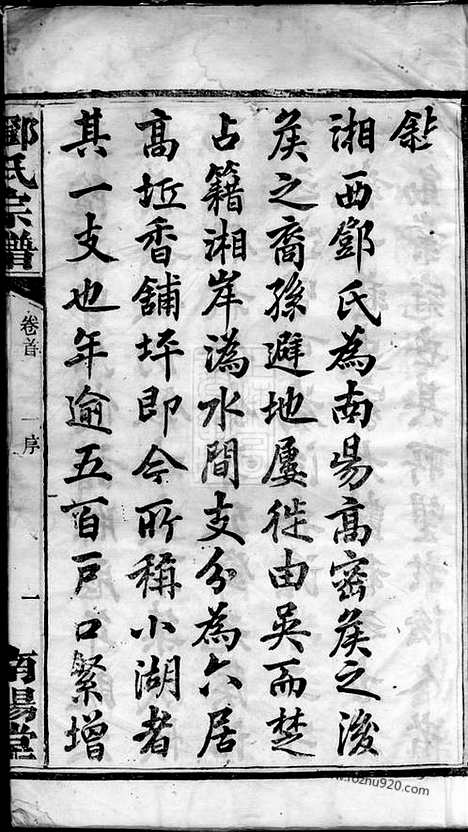 敍
湘西鄧氏為南陽高密矦之後
矦之裔孫避地屢徙由吳而楚
占籍湘岸溈水間支分為六居
高坵香舖坪即今所稱小湖者
其一支也年逾五百戶口繁增
鄧氏宗譜
卷首
一序
一
南陽堂
www.rozhu920.com